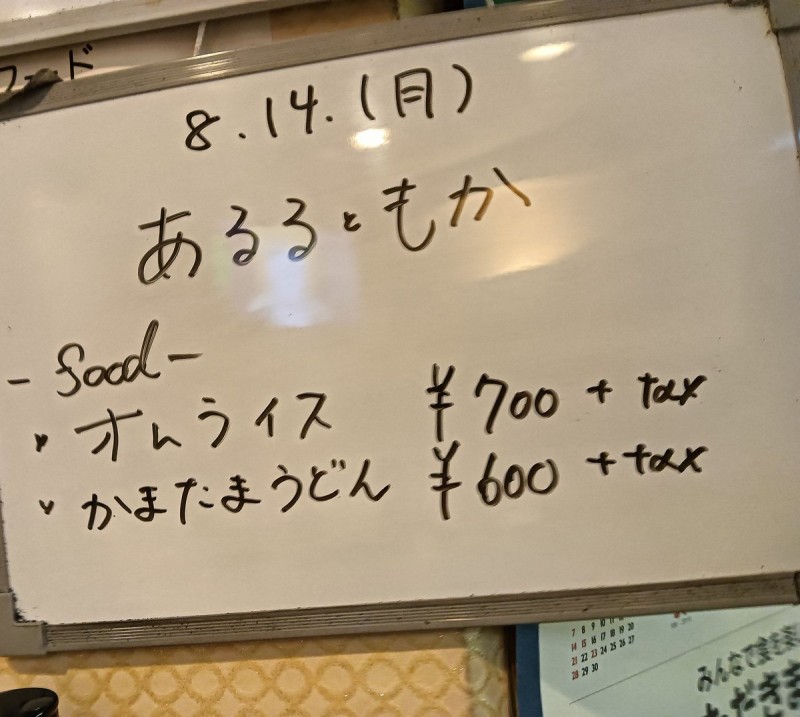 フード
8.14.(月)
あるるともか
- food -
・オムライス ¥700 + tax
・かまたまうどん ¥600 + tax
7 8 9 10 11 12 13
14 15 16 17 18 19 20
21 22 23 24 25 26 27
28 29 30
みんなで食を楽し
いただきま